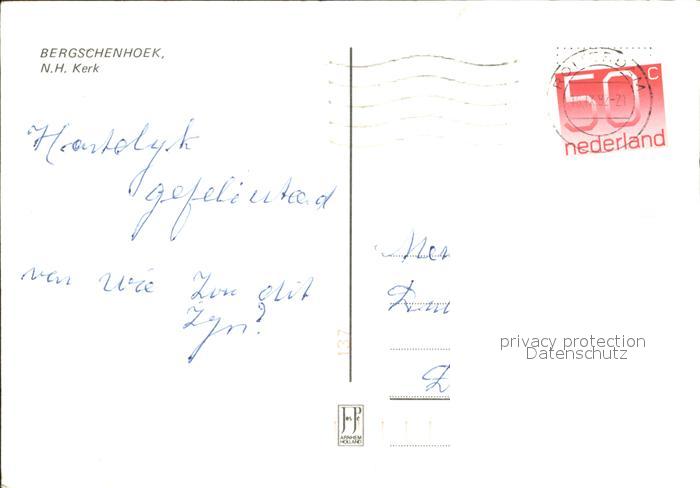 BERGSCHENHOEK,
N.H. Kerk
Hartelyk
gefelicitaed
van wie zou dit
zyn?
50 c
nederland
137
JosPé
ARNHEM
HOLLAND
privacy protection
Datenschutz